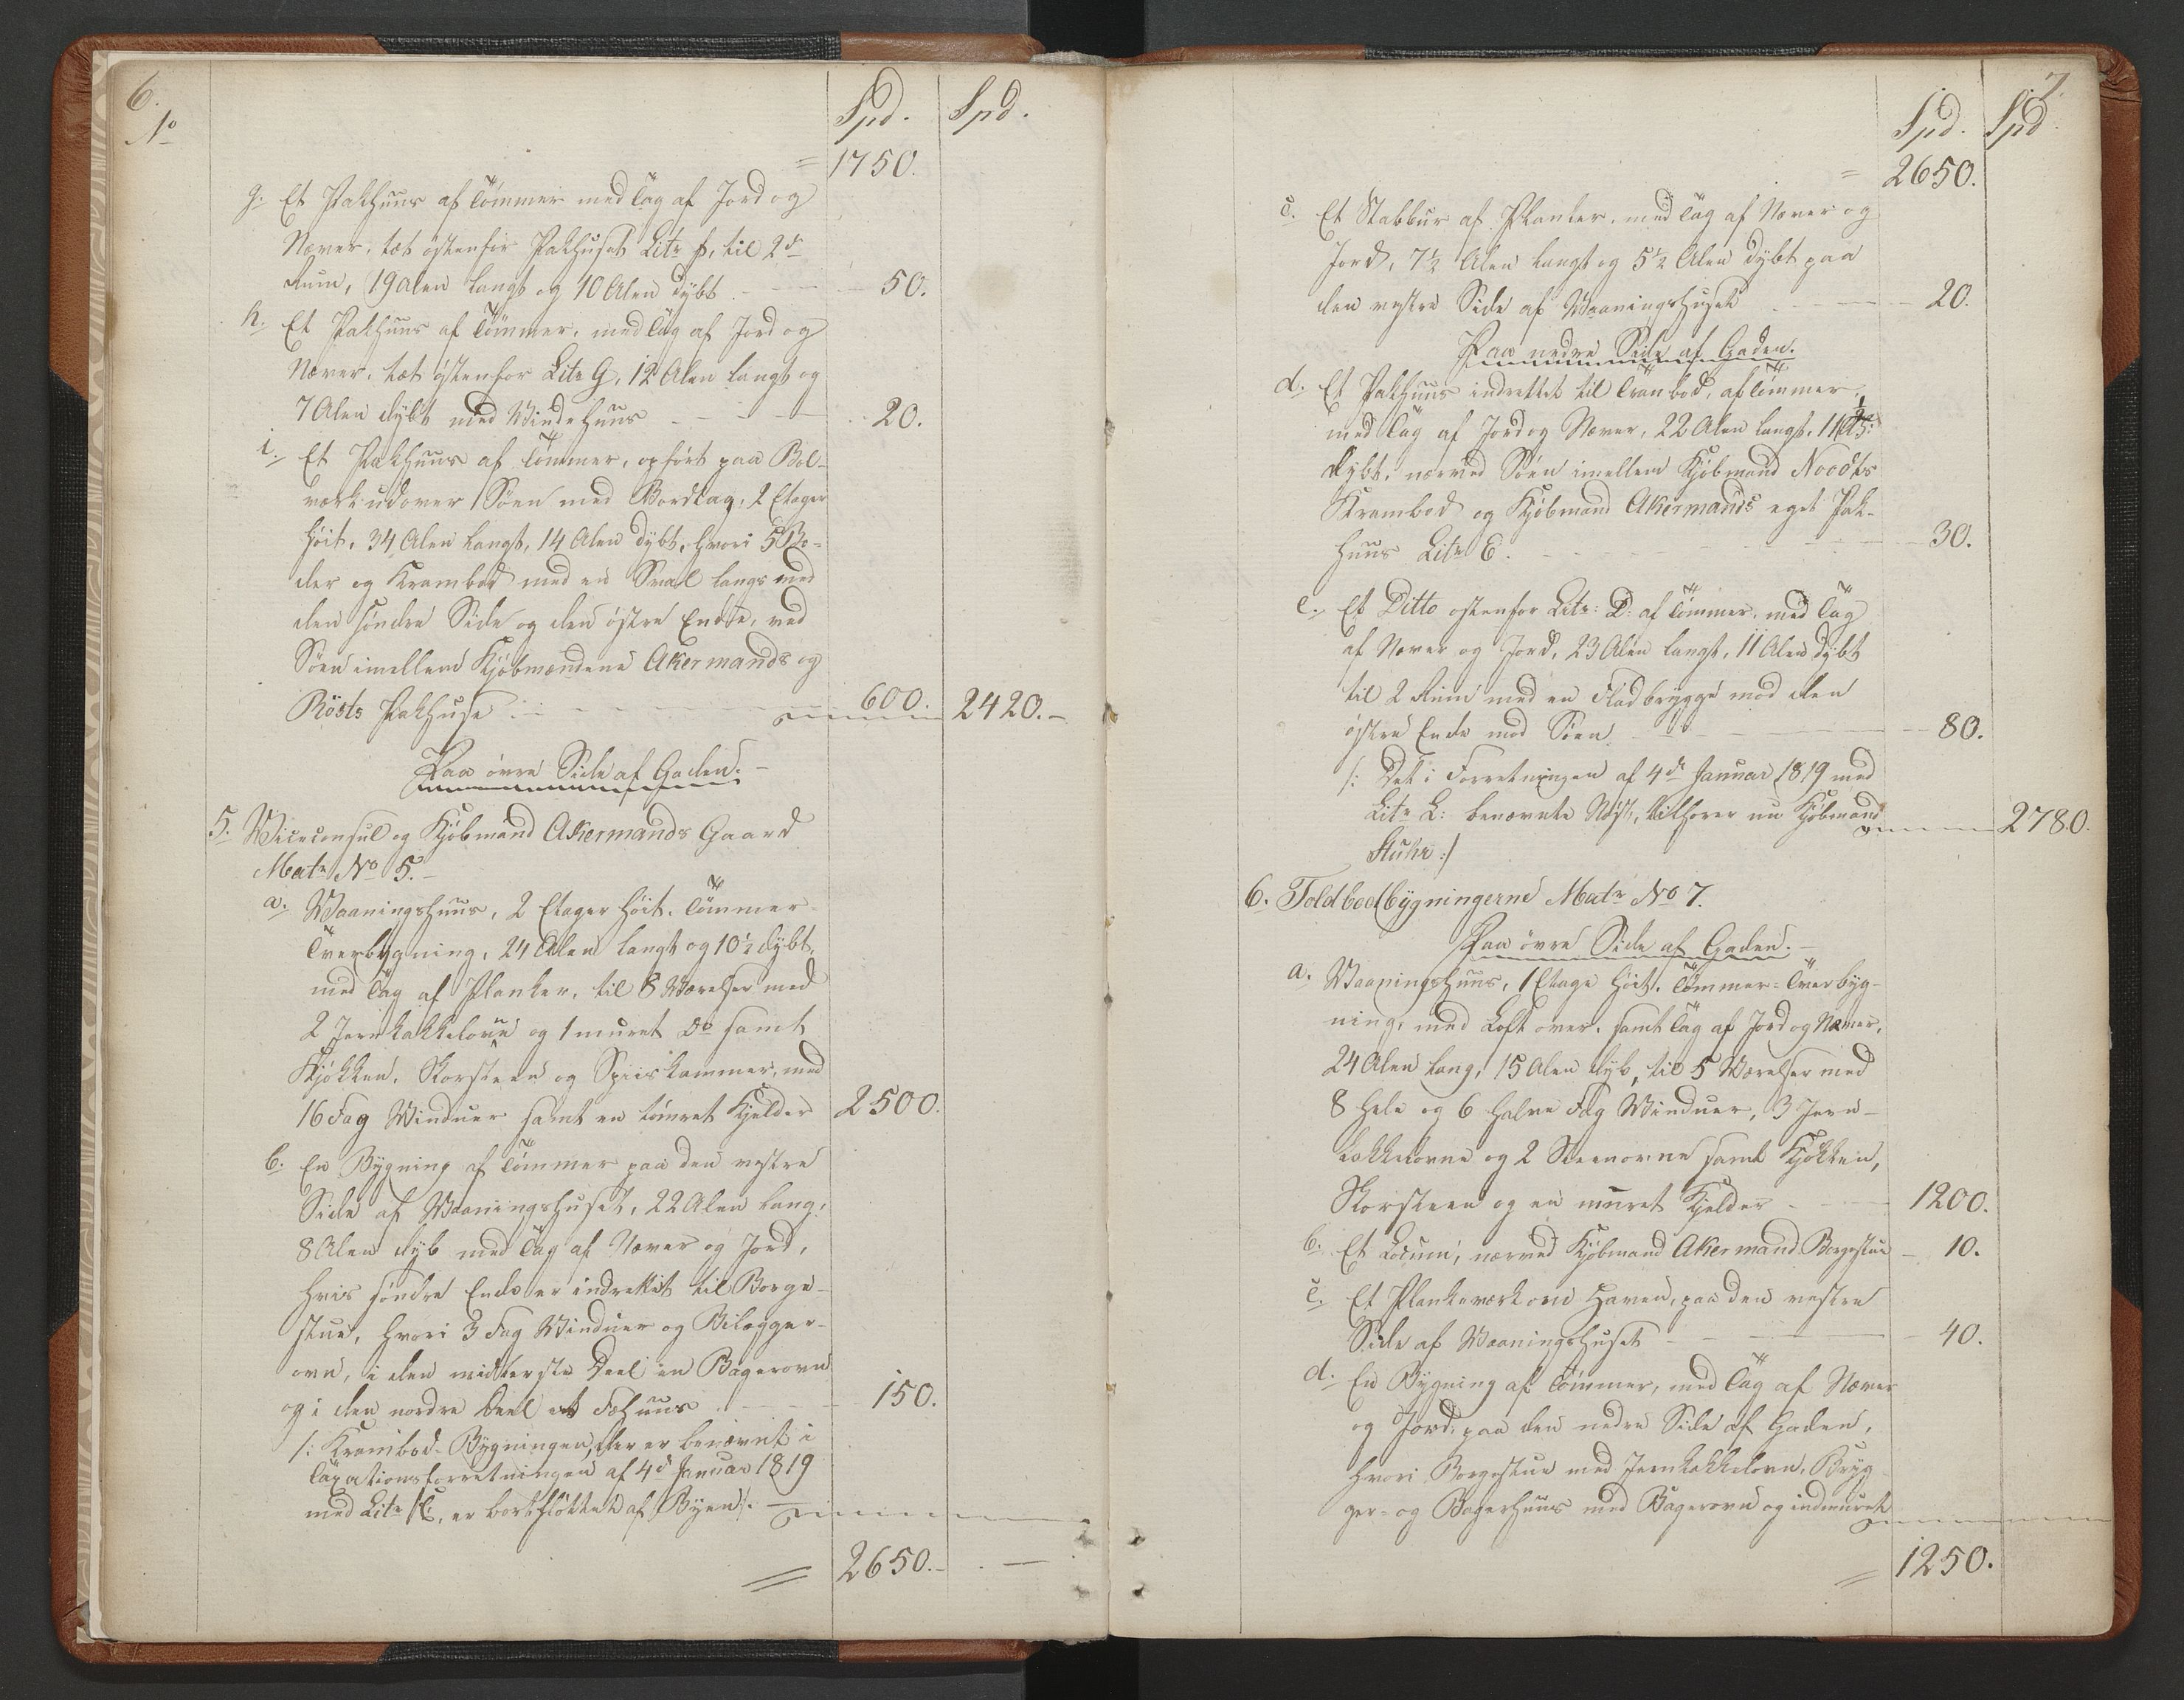 6.
No
Spd. Spd.
= 1750.
g. Et Pakhuus af Tømmer med Tag af Jord og
Næver, tæt østenfor Pakhuset Litr f, til 2de
Rum, 19 Alen langt og 10 Alen dybt - 50.
h. Et Pakhuus af Tømmer, med Tag af Jord og
Næver, tæt østenfor Litr G, 12 Alen langt og
7 Alen dybt med Windehuus - 20.
i. Et Pakhuus af Tømmer, opført paa Bol-
værk udover Søen med Bordtag, 2 Etager
høit, 34 Alen langt, 14 Alen dybt, hvori 5 Bo-
der og Krambod med en Sval langs med
den søndre Side og den østre Ende, ved
Søen imellem Kjøbmændene Akermands og
Rösts Pakhuse - 600. 2420.-
Paa øvre Side af Gaden.-
5. Viceconsul og Kjøbmand Akermands Gaard
Matr No 5.-
a. Waaningshuus, 2 Etager høit, Tømmer
Tverbygning, 24 Alen langt og 10½ dybt,
med Tag af Planker, til 8 Værelser med
2 Jernkakkelovne og 1 muret do samt
Kjøkken, Skorsteen og Spiiskammer, med
16 Fag Winduer samt en tømret Kjelder 2500.
b. En Bygning af Tømmer paa den vestre
Side af Waaningshuset, 22 Alen lang,
8 Alen dyb med Tag af Næver og Jord,
hvis søndre Ende er indrettet til Borge-
stue, hvori 3 Fag Winduer og Bilægger-
ovn, i den midterste Deel en Bagerovn
og i den nordre Deel et Fæhuus - 150.
/: Krambod-Bygningen, der er benævnt i
Taxationsforretningen af 4d Januar 1819
med Litr C, er bortflöttet af Byen :/. -
= 2650.- . -
7.
Spd. Spd.
= 2650.
c. Et Stabbur af Planker, med Tag af Næver og
Jord, 7½ Alen langt og 5½ Alen dybt paa
den vestre Side af Waaningshuset - 20.
Paa nedre Side af Gaden.
d. Et Pakhuus indrettet til Tranbod, af Tømmer,
med Tag af Jord og Næver, 22 Alen langt, 11½
dybt, nærved Søen imellem Kjøbmand Noodts
Krambod og Kjøbmand Akermands eget Pak-
huus Litr E. - 30.
e. Et Ditto ostenfor Litr: D: af Tømmer, med Tag
af Næver og Jord, 23 Alen langt, 11 Alen dybt
til 2 Rum med en Fladbrygge mod den
østre Ende mod Søen - 80.
/: Det i Forretningen af 4de Januar 1819 med
Litr L: benævnte Nøst, tilhører nu Kjøbmand
Stuhr :/ 2780.
6. Toldbodbygningerne Matr No 7.
Paa øvre Side af Gaden.-
a. Waaningshuus, 1 Etage høit, Tømmer-Tverbyg-
ning, med Loft over, samt Tag af Jord og Næver,
24 Alen lang, 15 Alen dyb, til 5 Værelser med
8 hele og 6 halve Fag Winduer, 3 Jern-
kakkelovne og 2 Steenovne samt Kjøkken,
Skorsteen og en muret Kjelder - 1200.
b. Et Locum, nærved Kjøbmand Akermand Borgestue - 10.
c. Et Plankeværk om Haven, paa den vestre
Side af Waaningshuset - 40.
d. En Bygning af Tømmer, med Tag af Næver
og Jord, paa den nedre Side af Gaden,
hvori Borgestue med Jernkakkelovn, Bryg-
ger- og Bagerhuus med Bagerovn og indmuret
= 1250.